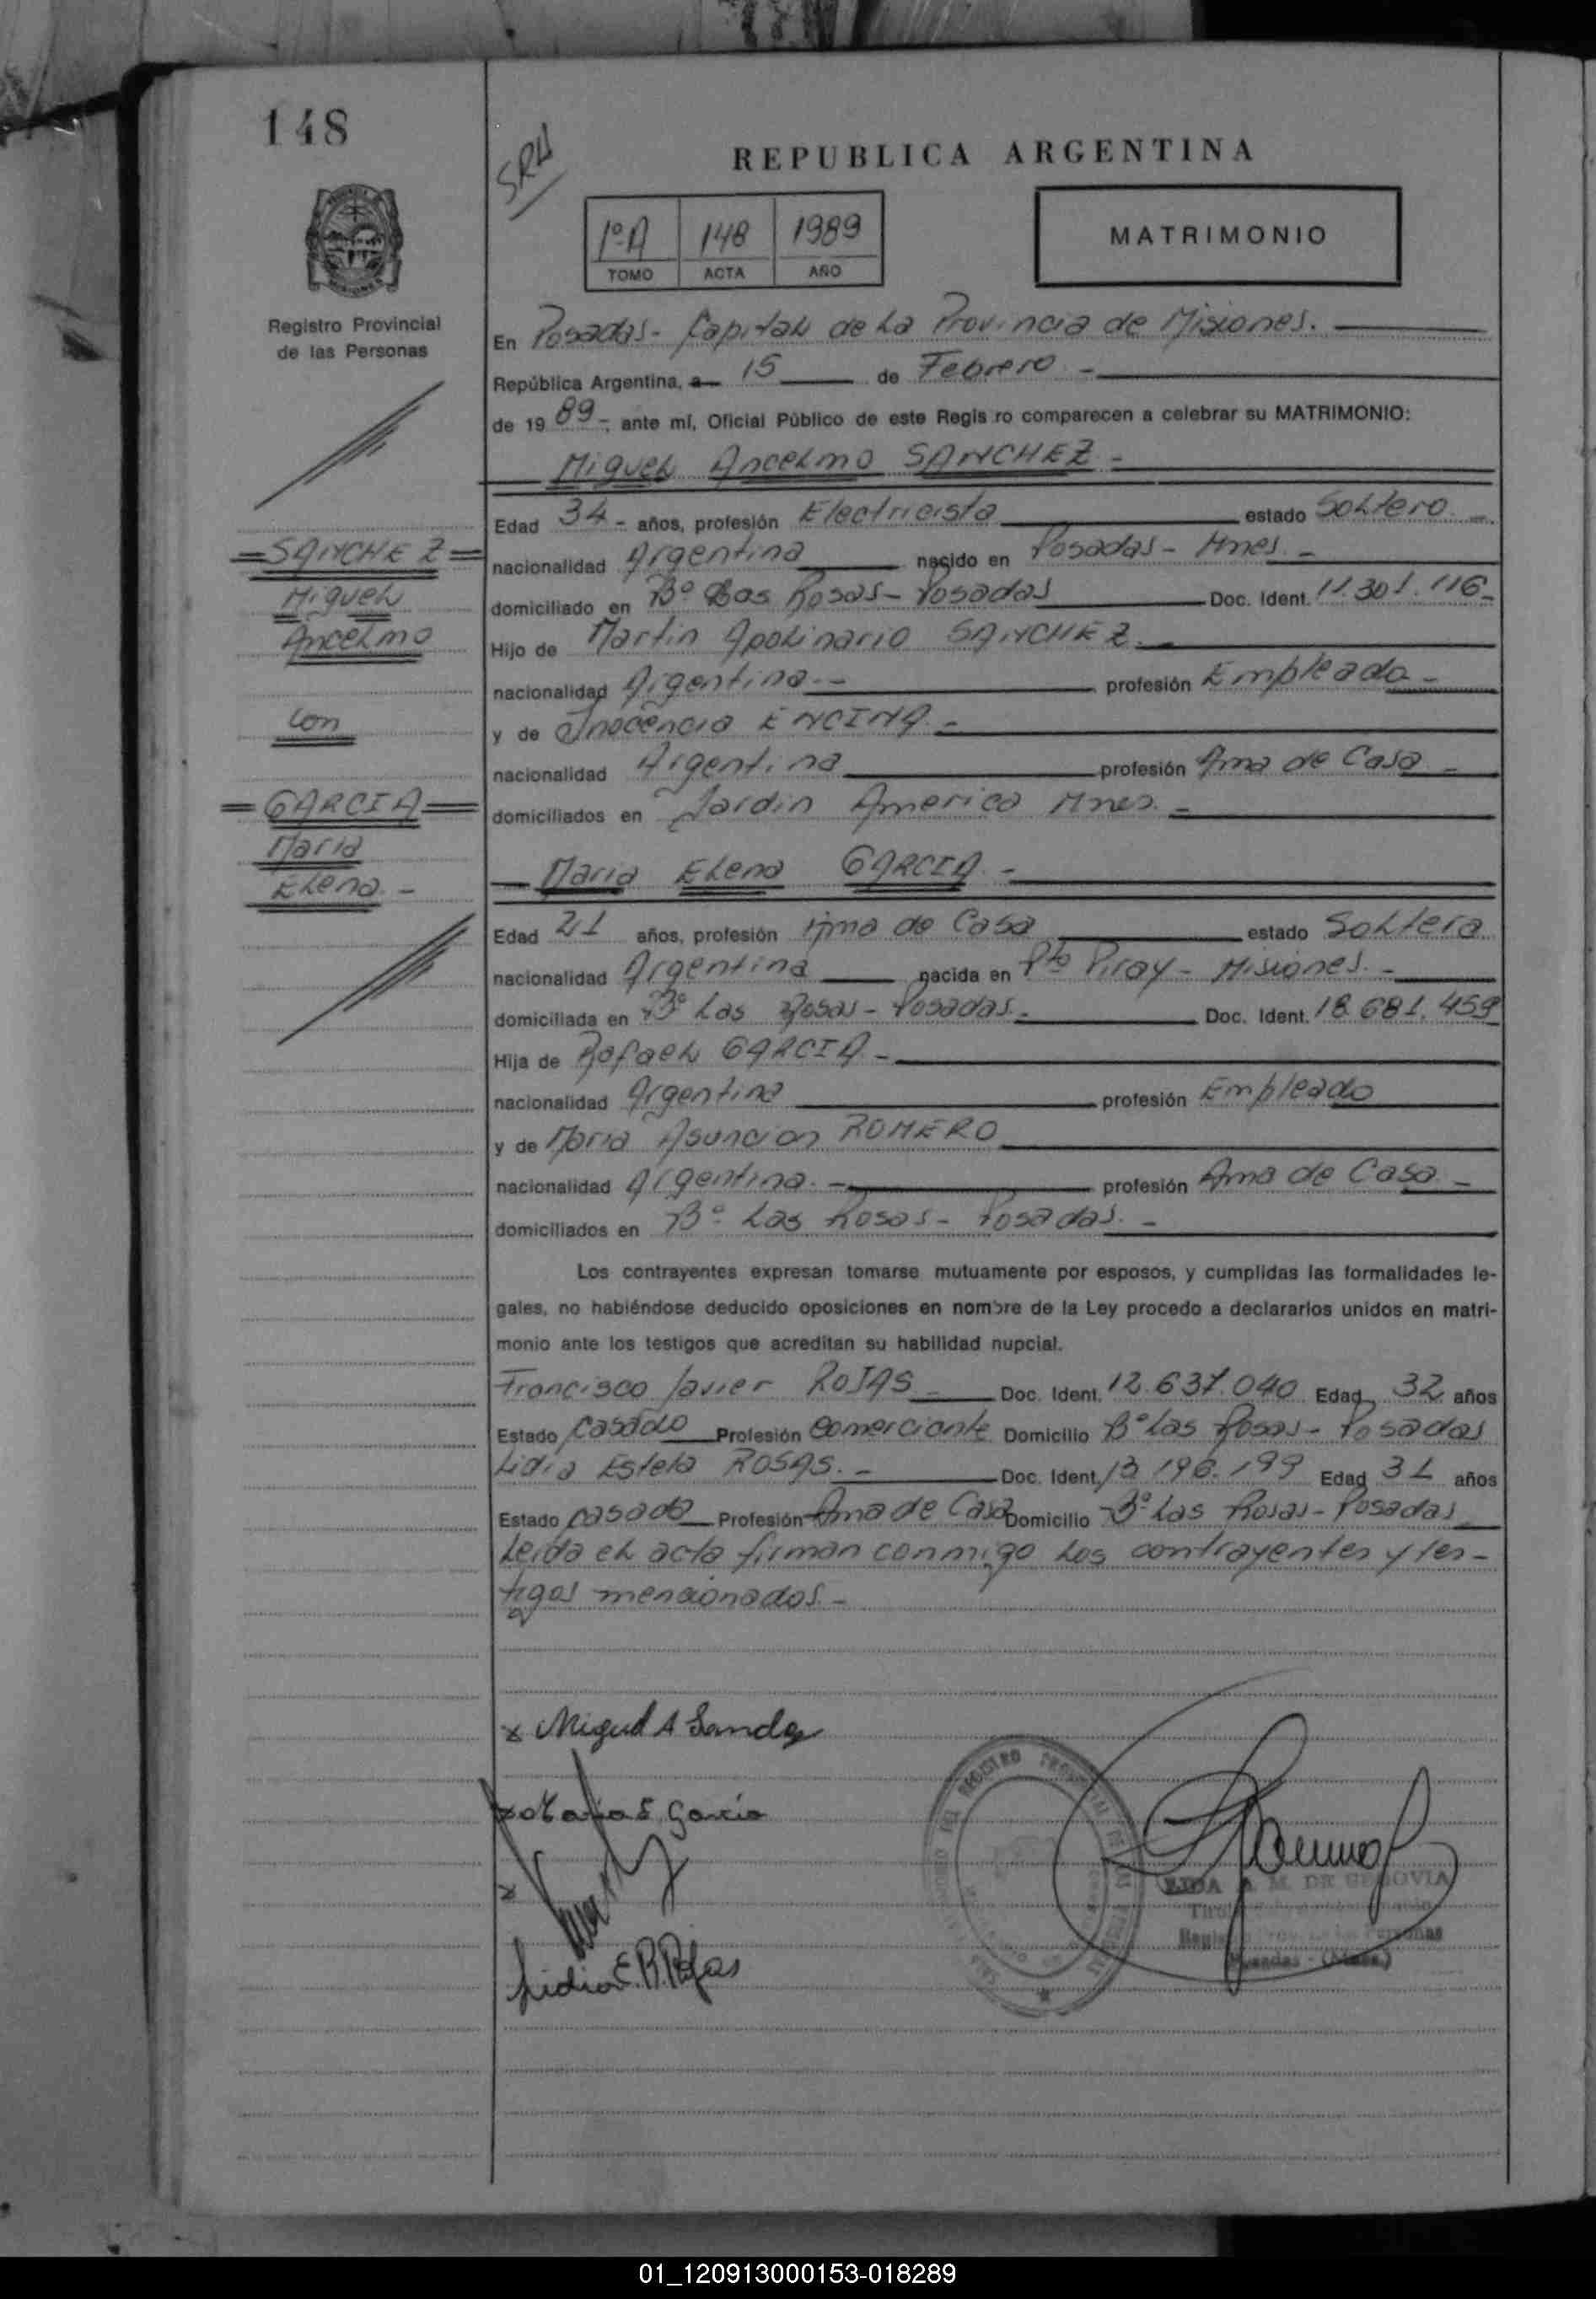 148
SRH
REPUBLICA ARGENTINA
1º A 148 1989
TOMO ACTA AÑO
MATRIMONIO
Registro Provincial
de las Personas
En Posadas - Capital de La Provincia de Misiones. -
República Argentina, a 15 de Febrero -
de 19 89 -, ante mí, Oficial Público de este Regis ro comparecen a celebrar su MATRIMONIO:
Miguel Ancelmo SANCHEZ -
Edad 34 - años, profesión Electricista estado Soltero -
nacionalidad Argentina nacido en Posadas - Mnes. -
domiciliado en Bº Las Rosas - Posadas Doc. Ident. 11.301.116 -
Hijo de Martin Apolinario SANCHEZ -
nacionalidad Argentina. - profesión Empleado -
y de Inocencia ENCINA -
nacionalidad Argentina profesión Ama de Casa -
domiciliados en Jardin America Mnes. -
= SANCHEZ =
Miguel
Ancelmo
con
= GARCIA =
Maria
Elena. -
- Maria Elena GARCIA. -
Edad 21 años, profesión Ama de Casa estado Soltera
nacionalidad Argentina nacida en Pto Piray - Misiones. -
domiciliada en Bº Las Rosas - Posadas. - Doc. Ident. 18.681.459
Hija de Rafael GARCIA -
nacionalidad Argentina profesión Empleado
y de Maria Asuncion ROMERO
nacionalidad Argentina. - profesión Ama de Casa -
domiciliados en Bº Las Rosas - Posadas. -
Los contrayentes expresan tomarse mutuamente por esposos, y cumplidas las formalidades le-
gales, no habiéndose deducido oposiciones en nombre de la Ley procedo a declararlos unidos en matri-
monio ante los testigos que acreditan su habilidad nupcial.
Francisco Javier ROJAS - Doc. Ident. 12.637.040 Edad 32 años
Estado Casado Profesión Comerciante Domicilio Bº Las Rosas - Posadas
Lidia Estela ROSAS. - Doc. Ident. 13.196.199 Edad 31 años
Estado casada Profesión Ama de Casa Domicilio Bº Las Rosas - Posadas
Leida el acta firman conmigo los contrayentes y tes-
tigos mencionados. -
x Miguel A Sanchez
x Maria E Garcia
x
Lidia E. R. Rojas
REGISTRO PROVINCIAL DE LAS
LIDA A. M. DE GENOVIA
Posadas - (Mnes.)
01_120913000153-018289